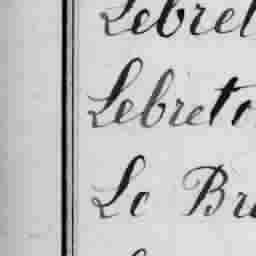 Lebret
Lebreto
Le Bru